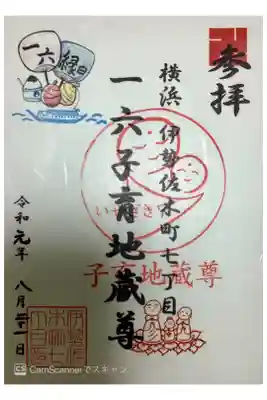 参拝
横浜 伊勢佐木町七丁目
一六子育地蔵尊
令和元年 八月 一日
一六
縁日
子育地蔵尊
CS CamScannerでスキャン